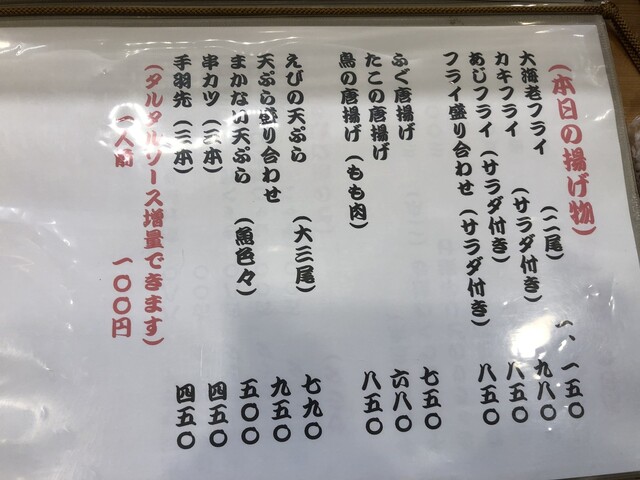 (本日の揚げ物)
大海老フライ (二尾) 一、一五〇
カキフライ (サラダ付き) 九八〇
あじフライ (サラダ付き) 八五〇
フライ盛り合わせ (サラダ付き) 八五〇
ふぐ唐揚げ 七五〇
たこの唐揚げ 六八〇
鳥の唐揚げ (もも肉) 八五〇
えびの天ぷら (大三尾) 七九〇
天ぷら盛り合わせ 九五〇
まかない天ぷら (魚色々) 五〇〇
串カツ (三本) 四五〇
手羽先 (三本) 四五〇
(タルタルソース増量できます)
一人前 一〇〇円